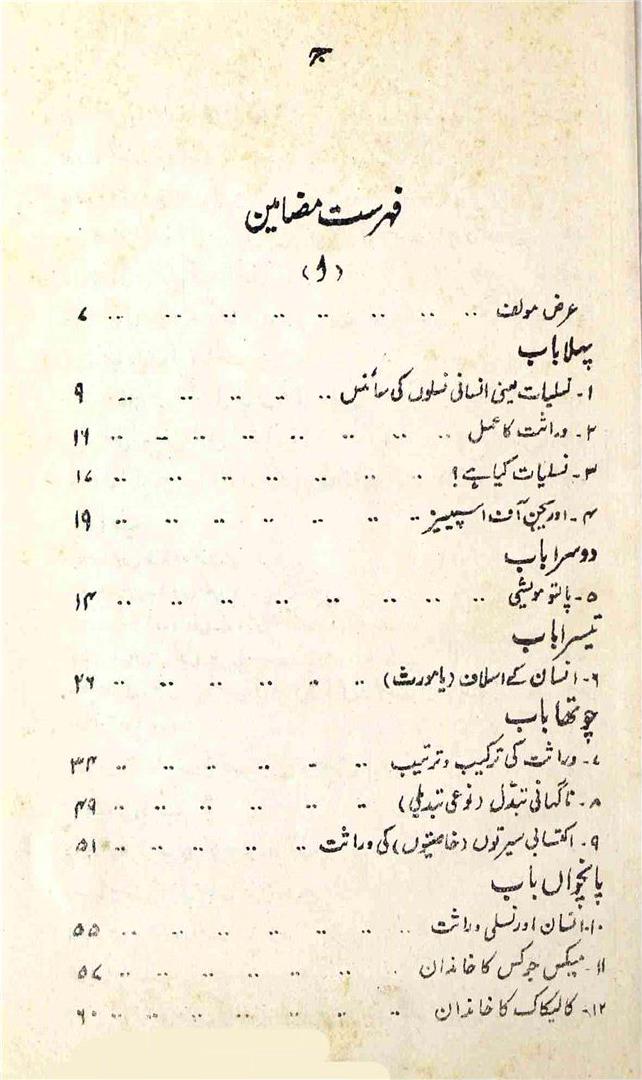 ۴
فہرست مضامین
(۱)
عرض مولف .. .. .. .. .. .. .. .. ۷
پہلا باب
۱- نسلیات یعنی انسانی نسلوں کی سائنس .. .. .. .. .. ۹
۲- وراثت کا عمل .. .. .. .. .. .. .. .. ۱۶
۳- نسلیات کیا ہے؟ .. .. .. .. .. .. .. ۱۷
۴- اوریجن آف اسپیسیز .. .. .. .. .. .. .. ۱۹
دوسرا باب
۵- پالتو مویشی .. .. .. .. .. .. .. .. ۱۴
تیسرا باب
۶- انسان کے اسلاف (یا مورث) .. .. .. .. .. .. .. ۲۶
چوتھا باب
۷- وراثت کی ترکیب و ترتیب .. .. .. .. .. .. .. ۳۴
۸- ناگہانی تبدّل (نوعی تبدیلی) .. .. .. .. .. .. ۴۹
۹- اکتسابی سیرتوں (خاصیتوں) کی وراثت .. .. .. .. .. ۵۱
پانچواں باب
۱۰- انسان اور نسلی وراثت .. .. .. .. .. .. .. ۵۵
۱۱- میکس جوکس کا خاندان .. .. .. .. .. .. .. ۵۷
۱۲- کالیکاک کا خاندان .. .. .. .. .. .. .. ۶۰